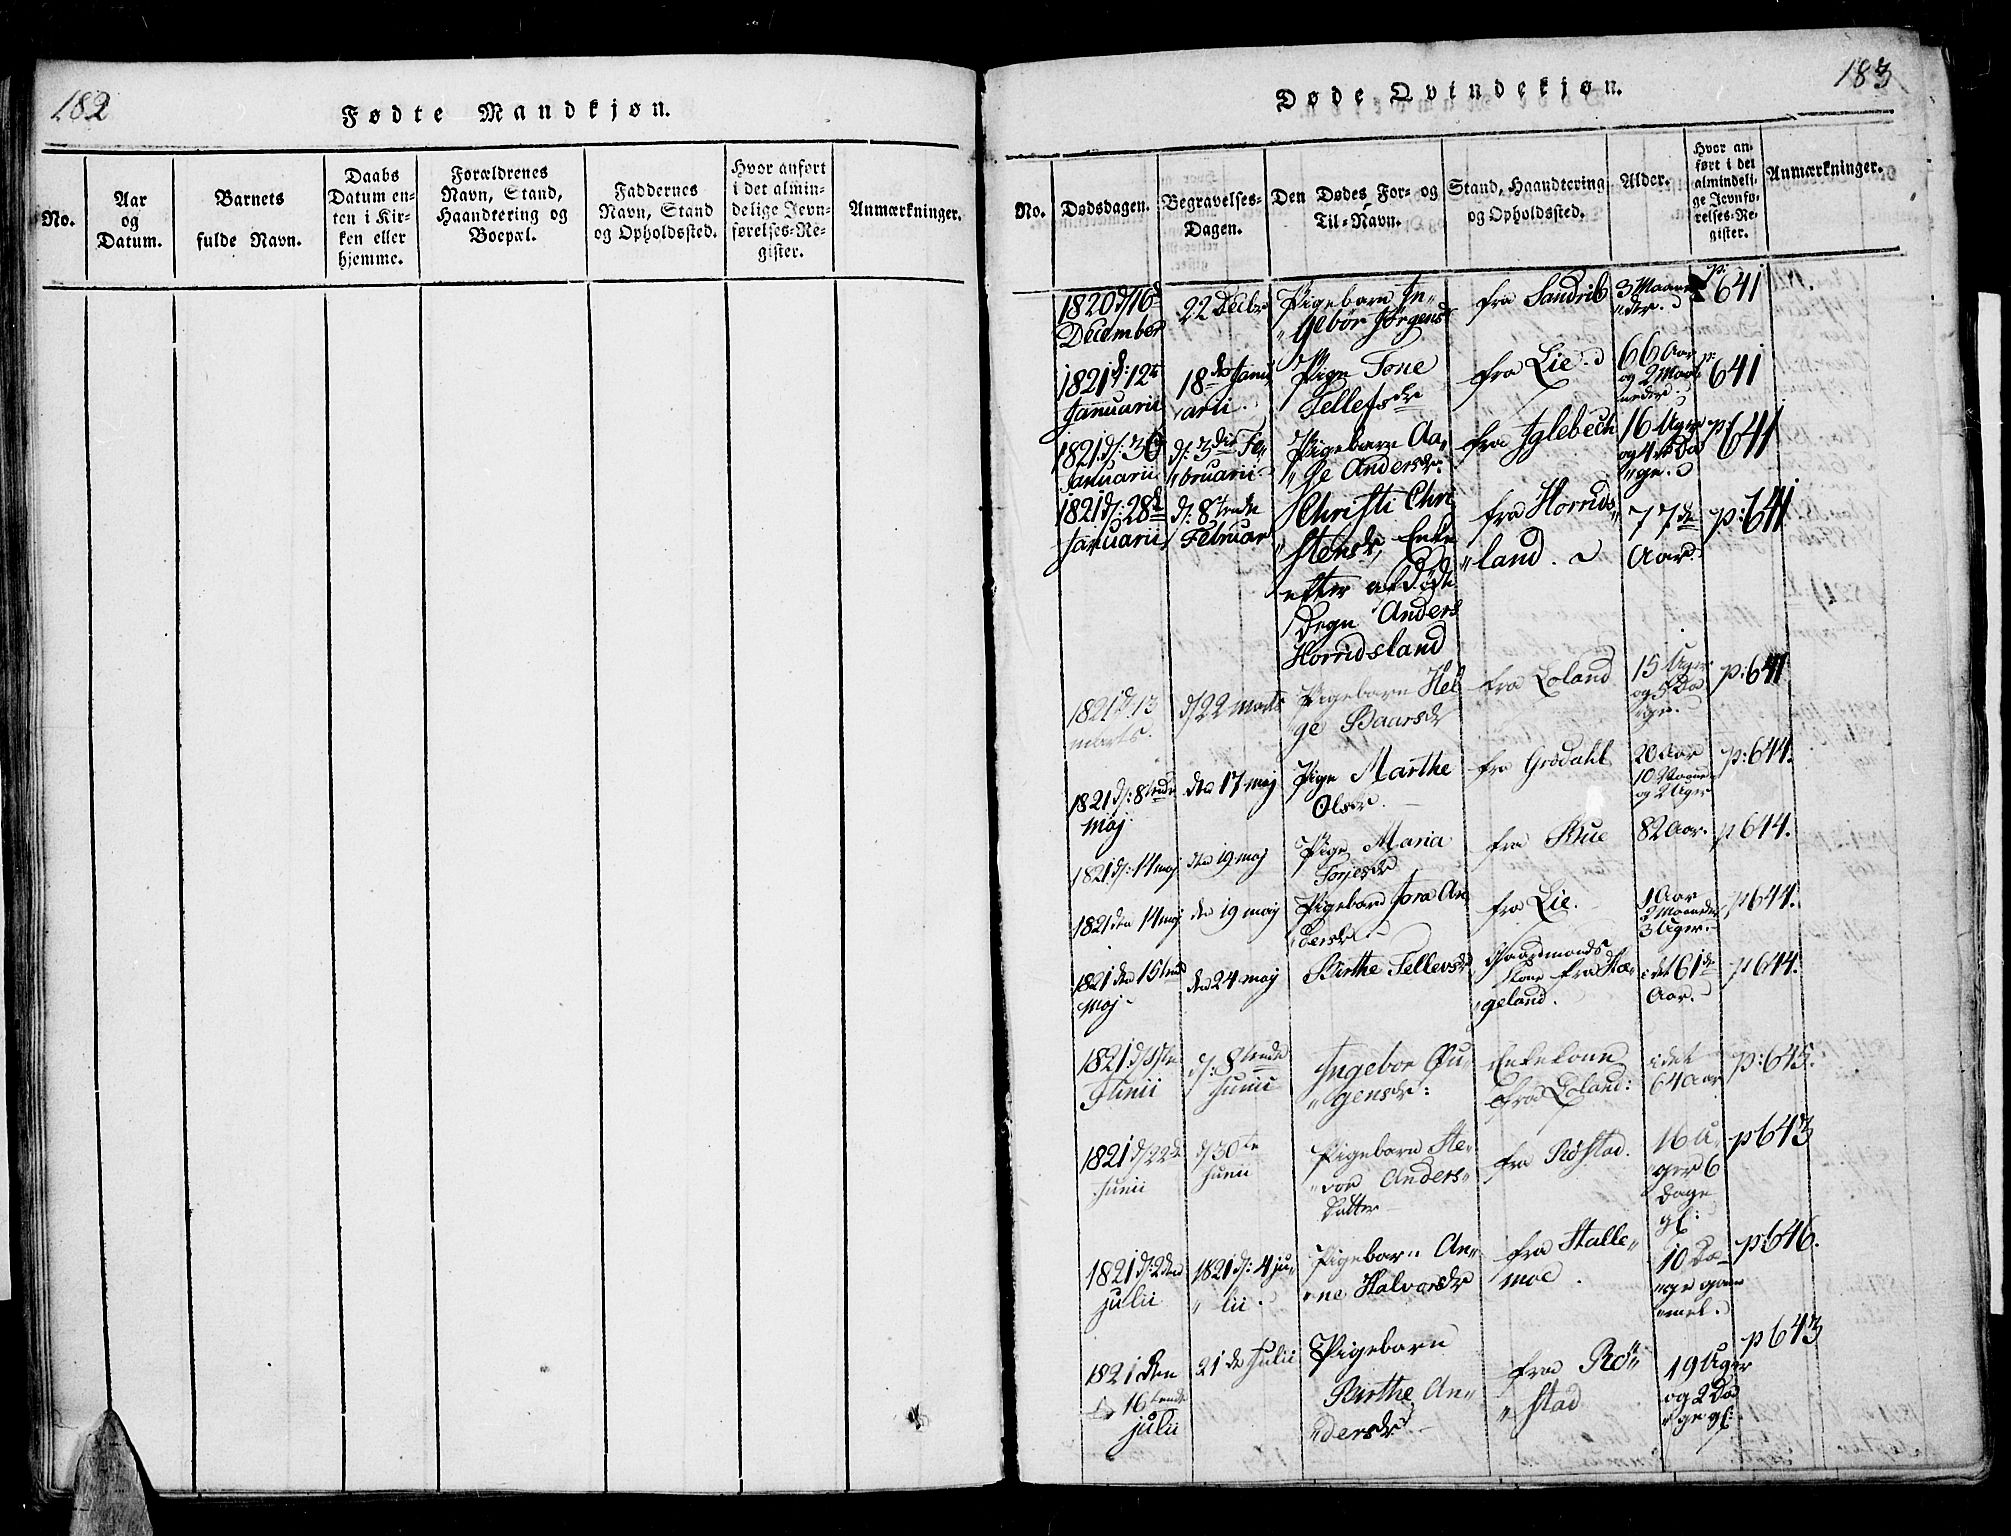 182
Fødte Mandkjøn.
No.
Aar
og
Datum.
Barnets
fulde Navn.
Daabs
Datum en-
ten i Kir-
ken eller
hjemme.
Forældrenes
Navn, Stand,
Haandtering og
Boepæl.
Faddernes
Navn, Stand
og Opholdssted.
Hvor anført
i det almin-
delige Jevn-
førelses-Re-
gister.
Anmærkninger.
183
Døde Qvindekjøn.
No.
Dødsdagen.
Begravelses-
Dagen.
Den Dødes For- og
Til-Navn.
Stand, Haandtering
og Opholdssted.
Alder.
Hvor an-
ført i det
almindeli-
ge Jevnfø-
relses-Re-
gister.
Anmærkninger.
1820 d/16
December
22 Decbr
Pigebarn In„
„gebør Jørgensd
fra Sandrib
3 Maan
„eder.
p: 641
1821 d: 12
Januarii
18 Janu
arii.
Pige Tone
Tellefsdr
fra Lie
66 Aar
og 2 Maa
neder
p: 641
1821 d/: 30
Januarii
d/: 3die Fe„
„bruarii
Pigebarn Aa„
„ge Andersdr:
fra Iglebech
16 Uger
og 4 Da
„ge.
p: 641
1821 d/: 28d
Januarii
d/: 8tende
Februar
Christi Chri
„stensdr, Enke
efter afdøde
Degn Anders
Horridsland
fra Horrids„
„land.
77de
Aar
p: 641
1821 d/ 13
marts.
d/22 Marts
Pigebarn Hel
ge Baarsdr
fra Loland
15 Uger
og 5 Da
„ge.
p: 641
1821 d/: 8tende
Maj
den 17 maj
Pige Marthe
Olsdr.
fra Grødahl
20 Aar
10 Maane
og 2 Uger
p: 644.
1821 d/: 14 maj
den 19 maj
Pige Maria
Torjesdr
fra Bhue
82 Aar.
p 644.
1821 den 14 maj
den 19 maj
Pigebarn Jora An
dersdr.
fra Lie.
1 Aar
2 Maaneder
3 Uger.
p 644.
1821 den 15tende
Maj
den 24 maj
Birthe Tellevsdr
Gaardmands
Kone fra Hæ„
„geland.
i det 61de
Aar.
p 644.
1821 d/1ste
Junii
d/: 8tende
Junii
Ingebor Gu„
„gensdr:
Enkekone
fra Loland:
i det
64 Aar
p: 645.
1821 d/22d
Junii
d/30te
Junii
Pigebarn Ste„
„vor Anders„
Datter
fra Røstad.
16 U„
ger 6
Dage
gl:
p 643
1821 d/: 2den
julii
1821 d/: 4 ju„
„lii.
Pigebarn An„
„ne Halvorsdr
fra Stalle„
moe.
10 Da„
„ge gam
„mel.
p 646.
1821 den
16tende
julii
21de Julii
Pigebarn
Birthe An„
„dersdr
fra Rø„
„stad
19 Uger
og 2 Da
„ge gl:
p 643